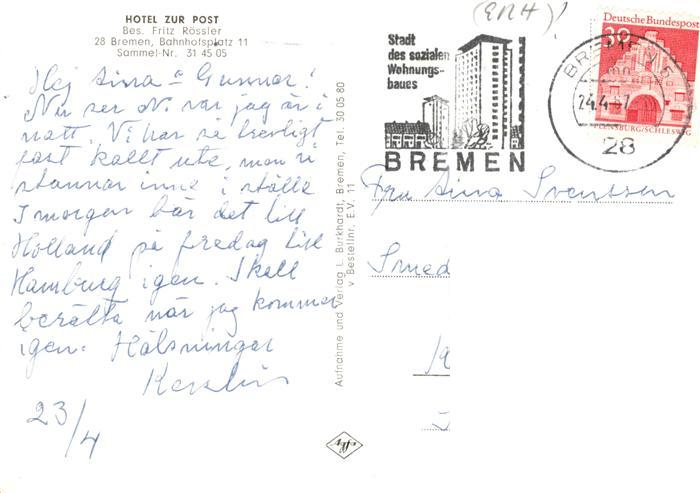 HOTEL ZUR POST
Bes. Fritz Rössler
28 Bremen, Bahnhofsplatz 11
Sammel-Nr. 31 45 05
Hej Anna o Gunnar!
Nu ser Ni var jag är i
natt. Vi har så trevligt
fast kallt ute, men vi
stannar inne i stället
I morgon bär det till
Holland på fredag till
Hamburg igen. Skall
berätta när jag kommer
igen. Hälsningar
Kerstin
23/4
Aufnahme und Verlag L. Burkhardt, Bremen, Tel. 30 05 80
v Bestellnr. E.V. 11
Stadt
des sozialen
Wohnungs-
baues
BREMEN
Deutsche Bundespost
30
FLENSBURG/SCHLESWIG
BREMEN 5
24.4.67
28
Fru Anna Svensson
Smed